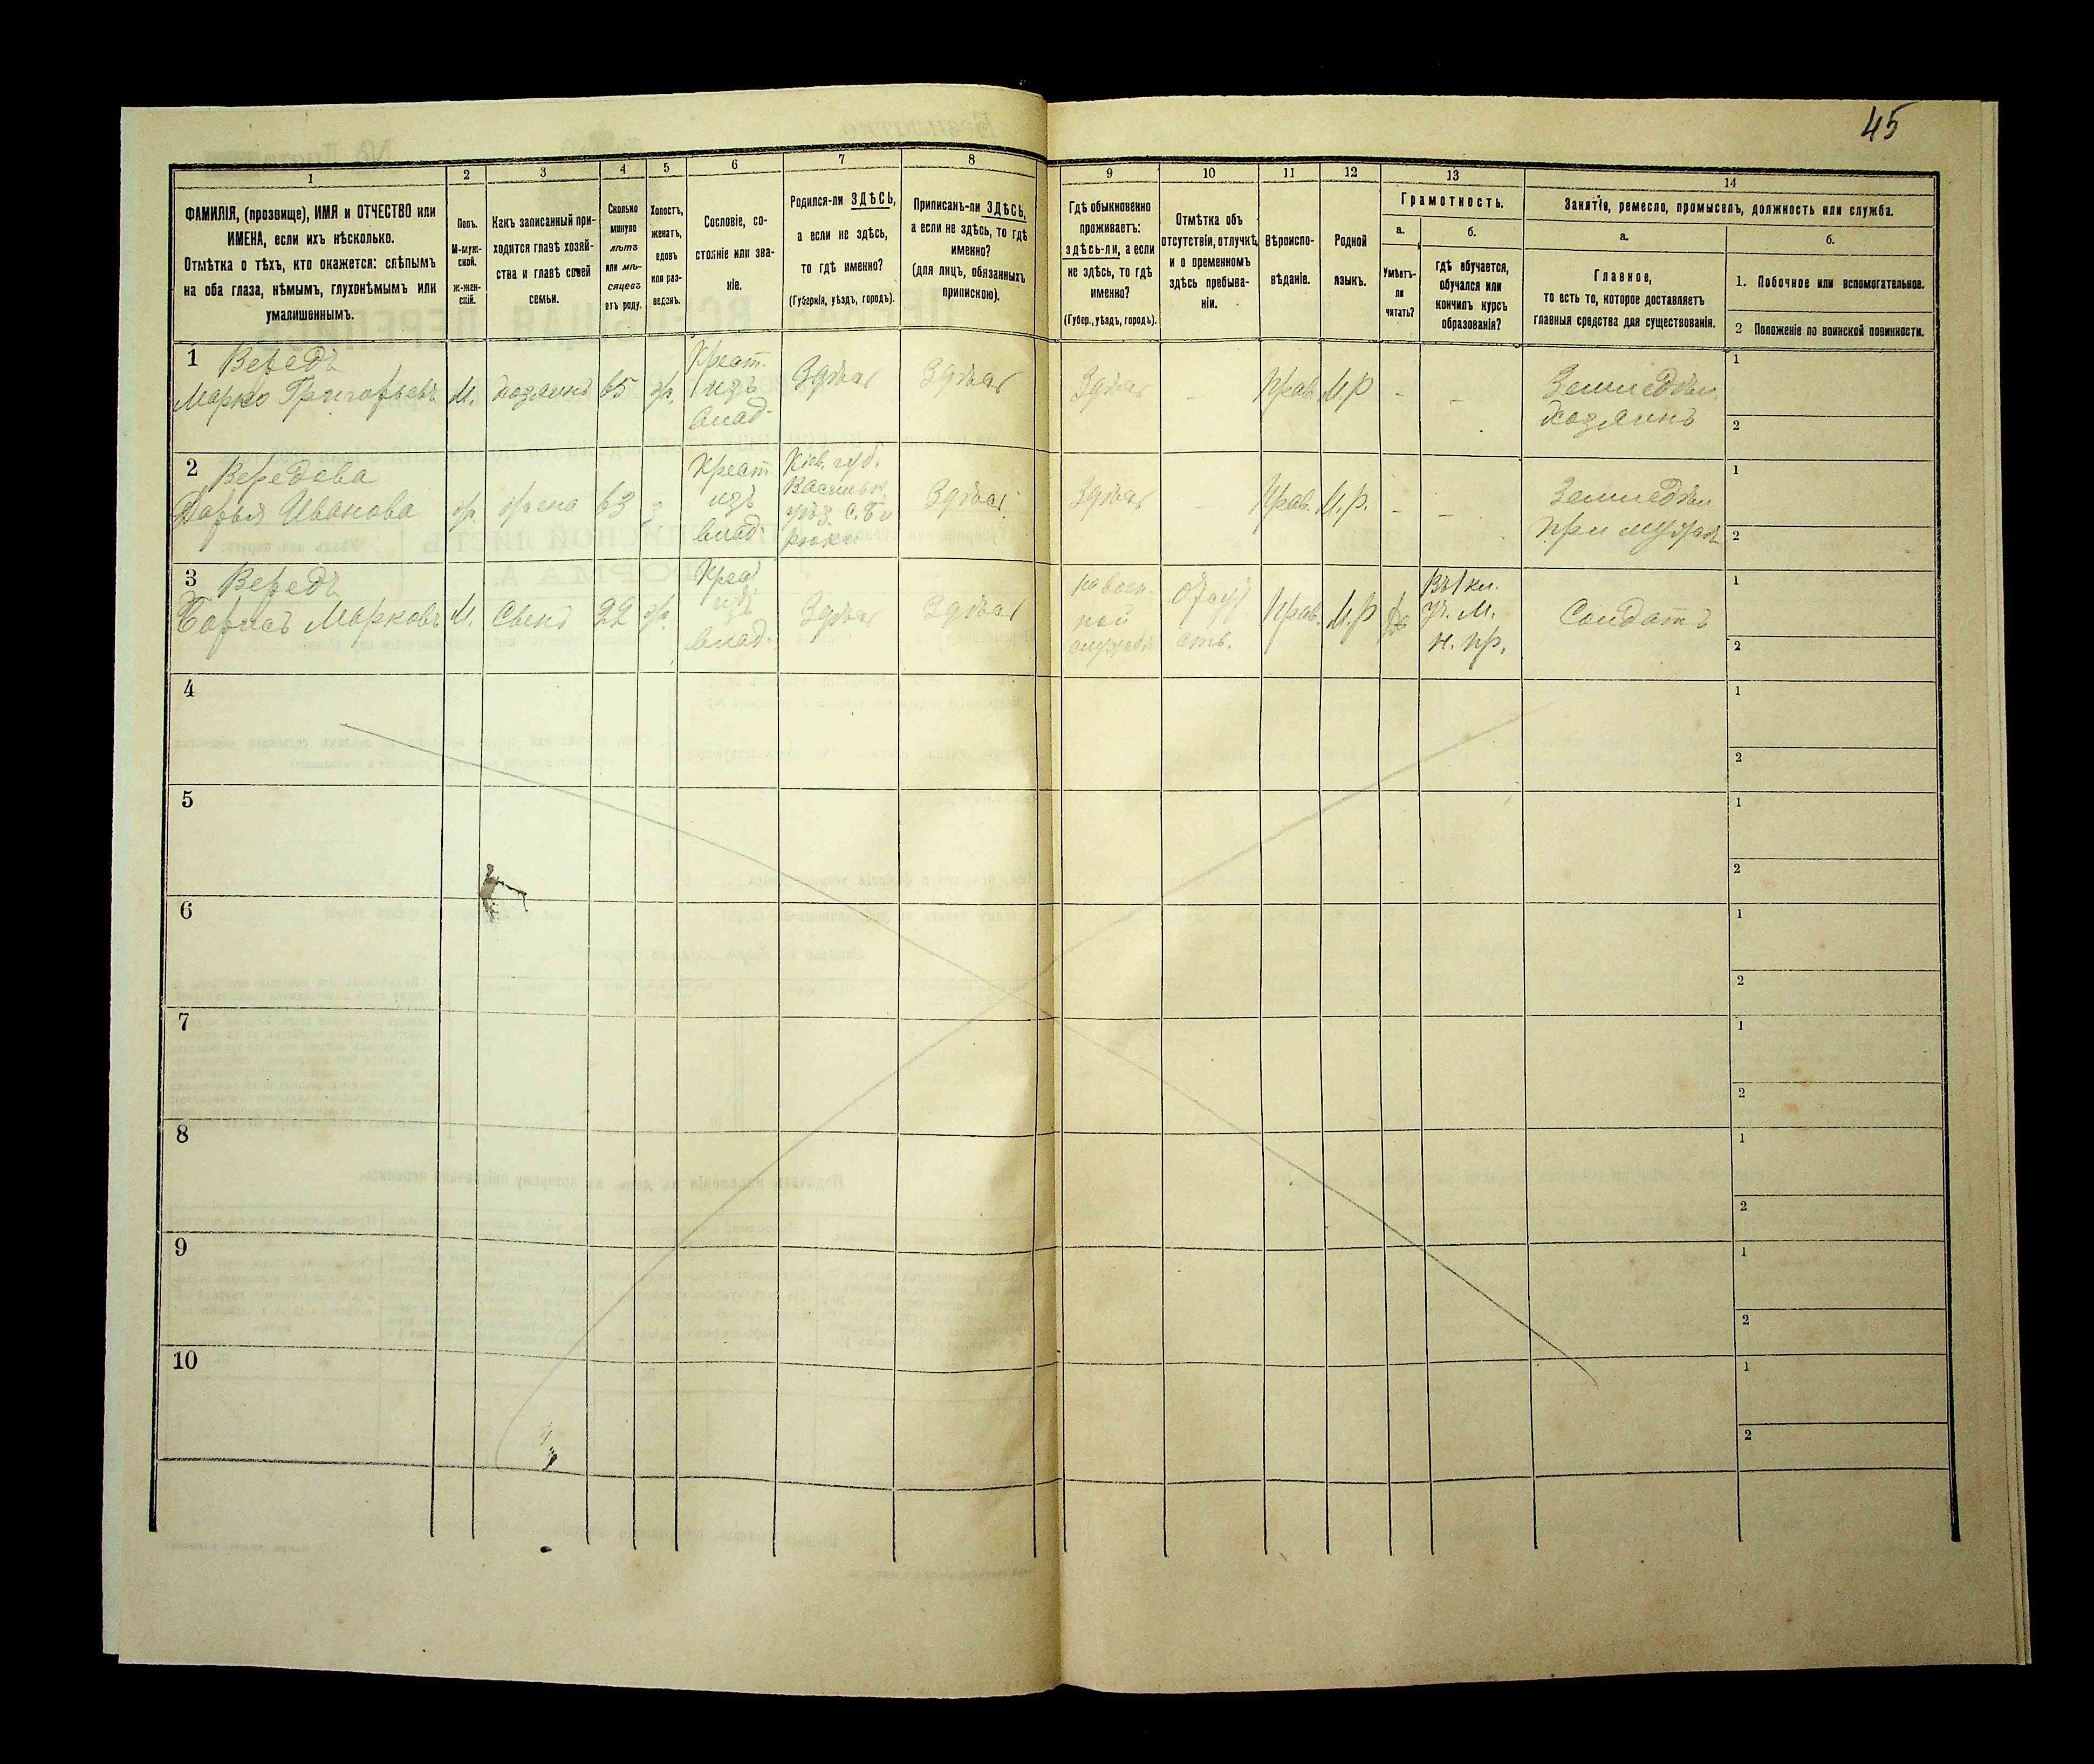 45
1
2
3
4
5
6
7
8
9
10
11
12
13
14
ФАМИЛІЯ, (прозвище), ИМЯ и ОТЧЕСТВО или
ИМЕНА, если ихъ нѣсколько.
Отмѣтка о тѣхъ, кто окажется: слѣпымъ
на оба глаза, нѣмымъ, глухонѣмымъ или
умалишеннымъ.
Полъ.
М-муж-
ской.
ж-жен-
скій.
Какъ записанный при-
ходится главѣ хозяй-
ства и главѣ своей
семьи.
Сколько
минуло
лѣтъ
или мѣ-
сяцевъ
отъ роду.
Холостъ,
женатъ,
вдовъ
или раз-
веденъ.
Сословіе, со-
стояніе или зва-
ніе.
Родился-ли ЗДѢСЬ,
а если не здѣсь,
то гдѣ именно?
(Губернія, уѣздъ, городъ).
Приписанъ-ли ЗДѢСЬ,
а если не здѣсь, то гдѣ
именно?
(для лицъ, обязанныхъ
припискою).
Гдѣ обыкновенно
проживаетъ:
здѣсь-ли, а если
не здѣсь, то гдѣ
именно?
(Губер., уѣздъ, городъ).
Отмѣтка объ
отсутствіи, отлучкѣ
и о временномъ
здѣсь пребыва-
ніи.
Вѣроиспо-
вѣданіе.
Родной
языкъ.
Грамотность.
а.
Умѣетъ-
ли
читать?
б.
гдѣ обучается,
обучался или
кончилъ курсъ
образованія?
Занятіе, ремесло, промыселъ, должность или служба.
а.
Главное,
то есть то, которое доставляетъ
главныя средства для существованія.
б.
1. Побочное или вспомогательное.
2 Положеніе по воинской повинности.
1 Вередъ
Марко Григорьевъ
М.
хозяинъ
65
ж.
Крест.
изъ
влад.
Здѣсь
Здѣсь
Здѣсь
-
Прав.
М.р
-
-
Земледѣл.
хозяинъ
1
2
2 Вередова
Дарья Иванова
ж.
жена
63
з
Крест.
изъ
влад.
Кіев. губ.
Васильк.
уѣз. с.
Здѣсь
Здѣсь
-
Прав.
М.р.
-
-
Земледѣл.
при мужѣ
1
2
3 Вередъ
Марковъ
М.
Сынъ
22
ж.
Крест.
изъ
влад.
Здѣсь
Здѣсь
на воен-
ной
службѣ
Прав.
М.р
Да
Въ 1 кл.
уч. М.
н. пр.
Солдатъ
1
2
4
1
2
5
1
2
6
1
2
7
1
2
8
1
2
9
1
2
10
1
2